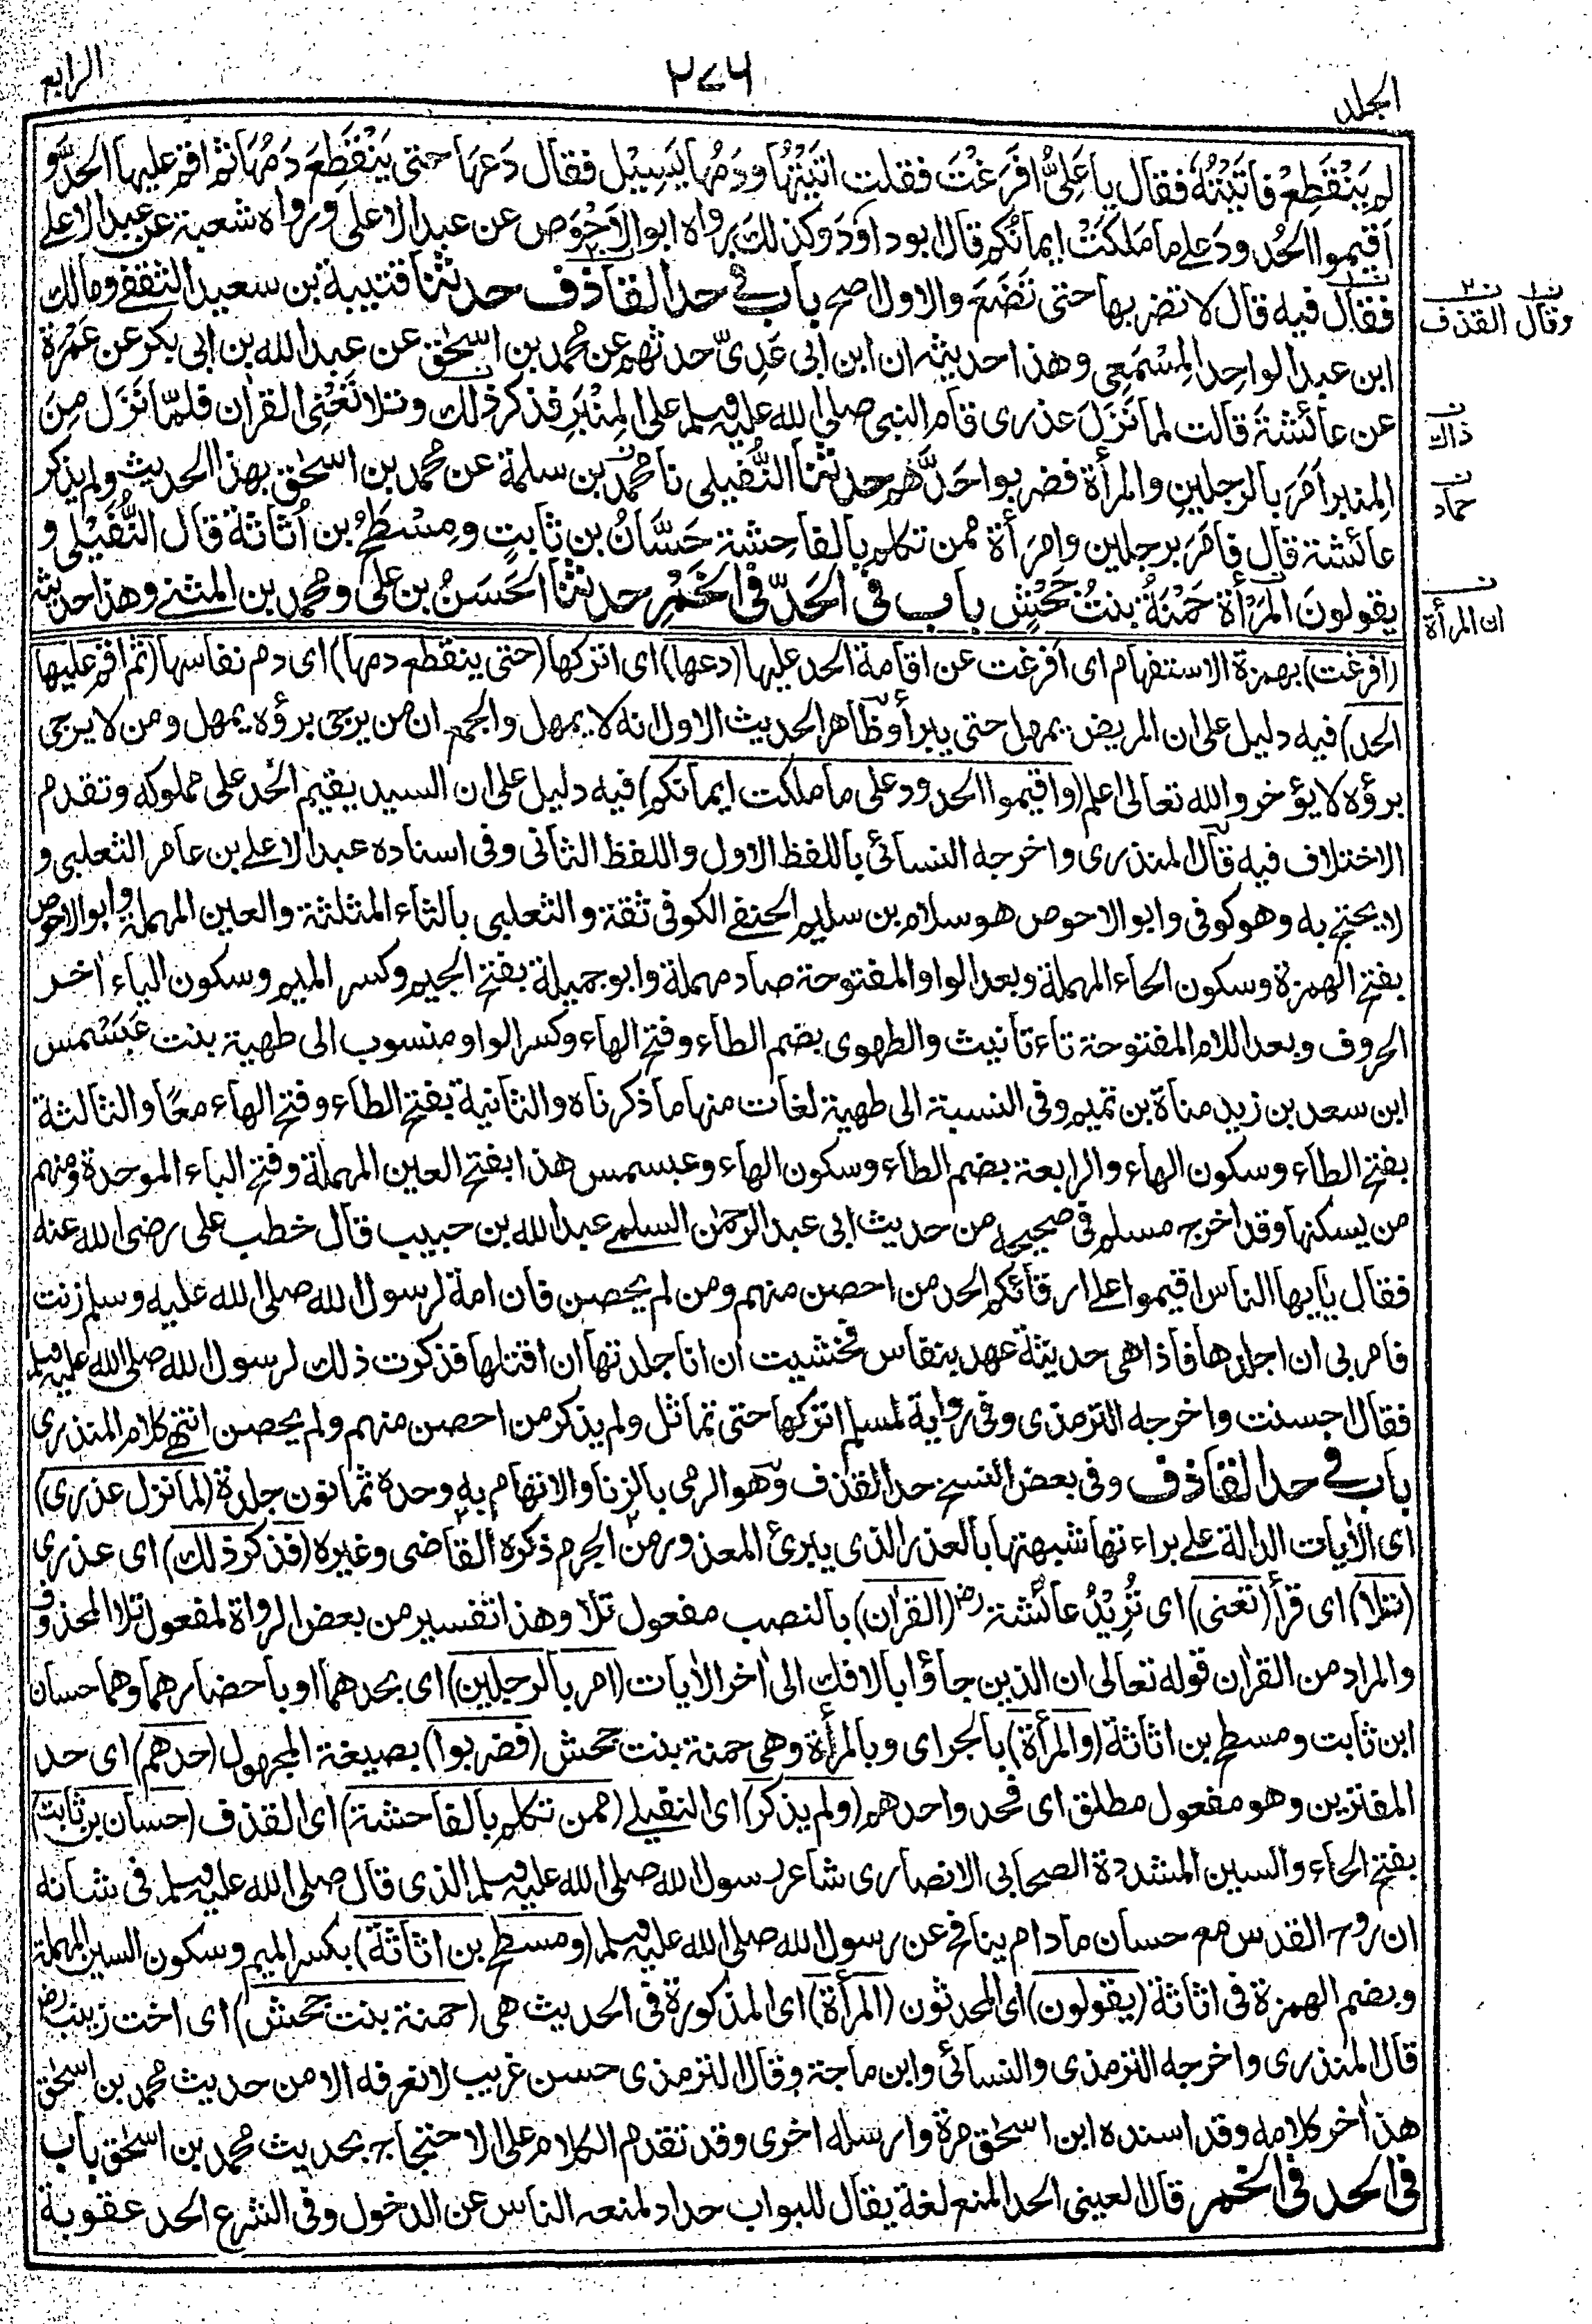 الجلد
٢٧٦
الرابع
لم يَنْقَطِعْ فأتيتُه فقال يا عَلِيُّ اَفَرَغْتَ فقلت اتيتُها ودمُها يَسِيْل فقال دَعْهَا حتى يَنْقَطِعَ دَمُهَا ثم اقم عليها الحدَّ و
اَقيموا الحُدودَ على ما مَلكَتْ ايمانُكم قال ابو داوٗدَ وكذلك رواه ابو الاَحْوَص عن عبد الاعلى ورواه شعبة عن عبد الاعلى
فقال فيه قال لا تضربها حتى تَضَعَ والاول اصح باب في حد القاذف حدثنا قتيبة بن سعيد الثقفى ومالك
ابن عبد الواحد المِسْمَعِى وهذا حديثه ان ابن ابى عَدِىّ حدثهم عن محمد بن اسحٰق عن عبد الله بن ابى بكر عن عَمْرَة
عن عائشةَ قالت لما نَزَلَ عذرى قام النبى صلى الله عليه وسلم على المِنْبَرِ فذكر ذلك وتلا تَعْنِى القراٰن فلمّا نَزَل مِنَ
المِنبر اَمَرَ بالرجلينِ والمرأة فضربوا حَدَّهم حدثنا النُّفيلى نا محمدُ بن سلمة عن محمد بن اسحٰق بهذا الحديث ولم يذكر
عائشة قال فامَرَ برجلين وامرَأة ممن تكلم بالفاحِشة حَسَّانُ بن ثابتٍ ومِسْطَحُ بن اُثاثة قال النُّفَيْلى و
يقولونَ المَرْأة حَمْنَةُ بنتُ جَحْشٍ باب في الحَدّ في الخَمْر حدثنا الحَسَنُ بن على ومحمد بن المثنى وهذا حديثه
وقال القذف
ذاك
حماد
ان المرأة
(افرغت) بهمزة الاستفهام اى أفرغت عن اقامة الحد عليها (دعها) اى اتركها (حتى ينقطع دمها) اى دم نفاسها (ثم اقم عليها
الحد) فيه دليل على ان المريض يمهل حتى يبرأ وظاهر الحديث الاول انه لا يمهل والجمع ان من يرجى برؤه يمهل ومن لا يرجى
برؤه لا يؤخر والله تعالى اعلم (واقيموا الحدود على ما ملكت ايمانكم) فيه دليل على ان السيد يقيم الحد على مملوكه وتقدم
الاختلاف فيه قال المنذرى واخرجه النسائى باللفظ الاول واللفظ الثانى وفى اسناده عبد الاعلى بن عامر الثعلبى و
لا يحتج به وهو كوفى وابو الاحوص هو سلام بن سليم الحنفى الكوفى ثقة والثعلبى بالثاء المثلثة والعين المهملة وابو الاحوص
بفتح الهمزة وسكون الحاء المهملة وبعد الواو المفتوحة صاد مهملة وابو جميلة بفتح الجيم وكسر الميم وسكون الياء اٰخر
الحروف وبعد اللام المفتوحة تاء تانيث والطهوى بضم الطاء وفتح الهاء وكسر الواو منسوب الى طهية بنت عَبَشْمس
ابن سعد بن زيد مناة بن تميم وفى النسبة الى طهية لغات منها ما ذكرناه والثانية بفتح الطاء وفتح الهاء معًا والثالثة
بفتح الطاء وسكون الهاء والرابعة بضم الطاء وسكون الهاء وعبسمس هذا بفتح العين المهملة وفتح الباء الموحدة ومنهم
من يسكنها وقد اخرج مسلم فى صحيحه من حديث ابى عبد الرحمٰن السلمى عبد الله بن حبيب قال خطب على رضى الله عنه
فقال يٰايها الناس اقيموا على ارقائكم الحد من احصن منهم ومن لم يحصن فان امة لرسول الله صلى الله عليه وسلم زنت
فامر بى ان اجلدها فاذا هى حديثة عهد بنفاس فخشيت ان انا جلدتها ان اقتلها فذكرت ذلك لرسول الله صلى الله عليه وسلم
فقال احسنت واخرجه الترمذى وفى رواية لمسلم اتركها حتى تماثل ولم يذكر من احصن منهم ولم يحصن انتهى كلام المنذرى
باب في حد القاذف وفى بعض النسخ حد القذف وهو الرمى بالزنا والاتهام به وحده ثمانون جلدة (لما نزل عذرى)
اى الاٰيات الدالة على براءتها شبهتها بالعذر الذى يبرئ المعذور من الجرم ذكره القاضى وغيره (فذكر ذلك) اى عذرى
(تلا) اى قرأ (تعنى) اى تُرِيْدُ عائشة رض (القراٰن) بالنصب مفعول تلا وهذا تفسير من بعض الرواة لمفعول تلا المحذوف
والمراد من القراٰن قوله تعالى ان الذين جاؤا بالافك الى اٰخر الاٰيات (امر بالرجلين) اى بحدهما او باحضارهما وهما حسان
ابن ثابت ومسطح بن اثاثة (والمرأة) بالجر اى وبالمرأة وهى حمنة بنت جحش (فضربوا) بصيغة المجهول (حدهم) اى حد
المفترين وهو مفعول مطلق اى فحدوا حدهم (ولم يذكر) اى النفيلى (ممن تكلم بالفاحشة) اى القذف (حسان بن ثابت)
بفتح الحاء والسين المشددة الصحابى الانصارى شاعر رسول الله صلى الله عليه وسلم الذى قال صلى الله عليه وسلم فى شانه
ان روح القدس مع حسان مادام ينافح عن رسول الله صلى الله عليه وسلم (ومسطح بن اثاثة) بكسر الميم وسكون السين المهملة
وبضم الهمزة فى اثاثة (يقولون) اى المحدثون (المرأة) اى المذكورة فى الحديث هى (حمنة بنت جحش) اى اخت زينب رض
قال المنذرى واخرجه الترمذى والنسائى وابن ماجة وقال الترمذى حسن غريب لا نعرفه الا من حديث محمد بن اسحٰق
هذا اٰخر كلامه وقد اسنده ابن اسحٰق مرة وارسله اخرى وقد تقدم الكلام على الاحتجاج بحديث محمد بن اسحٰق باب
فى الحد فى الخمر قال العينى الحد المنع لغة يقال للبواب حداد لمنعه الناس عن الدخول وفى الشرع الحد عقوبة